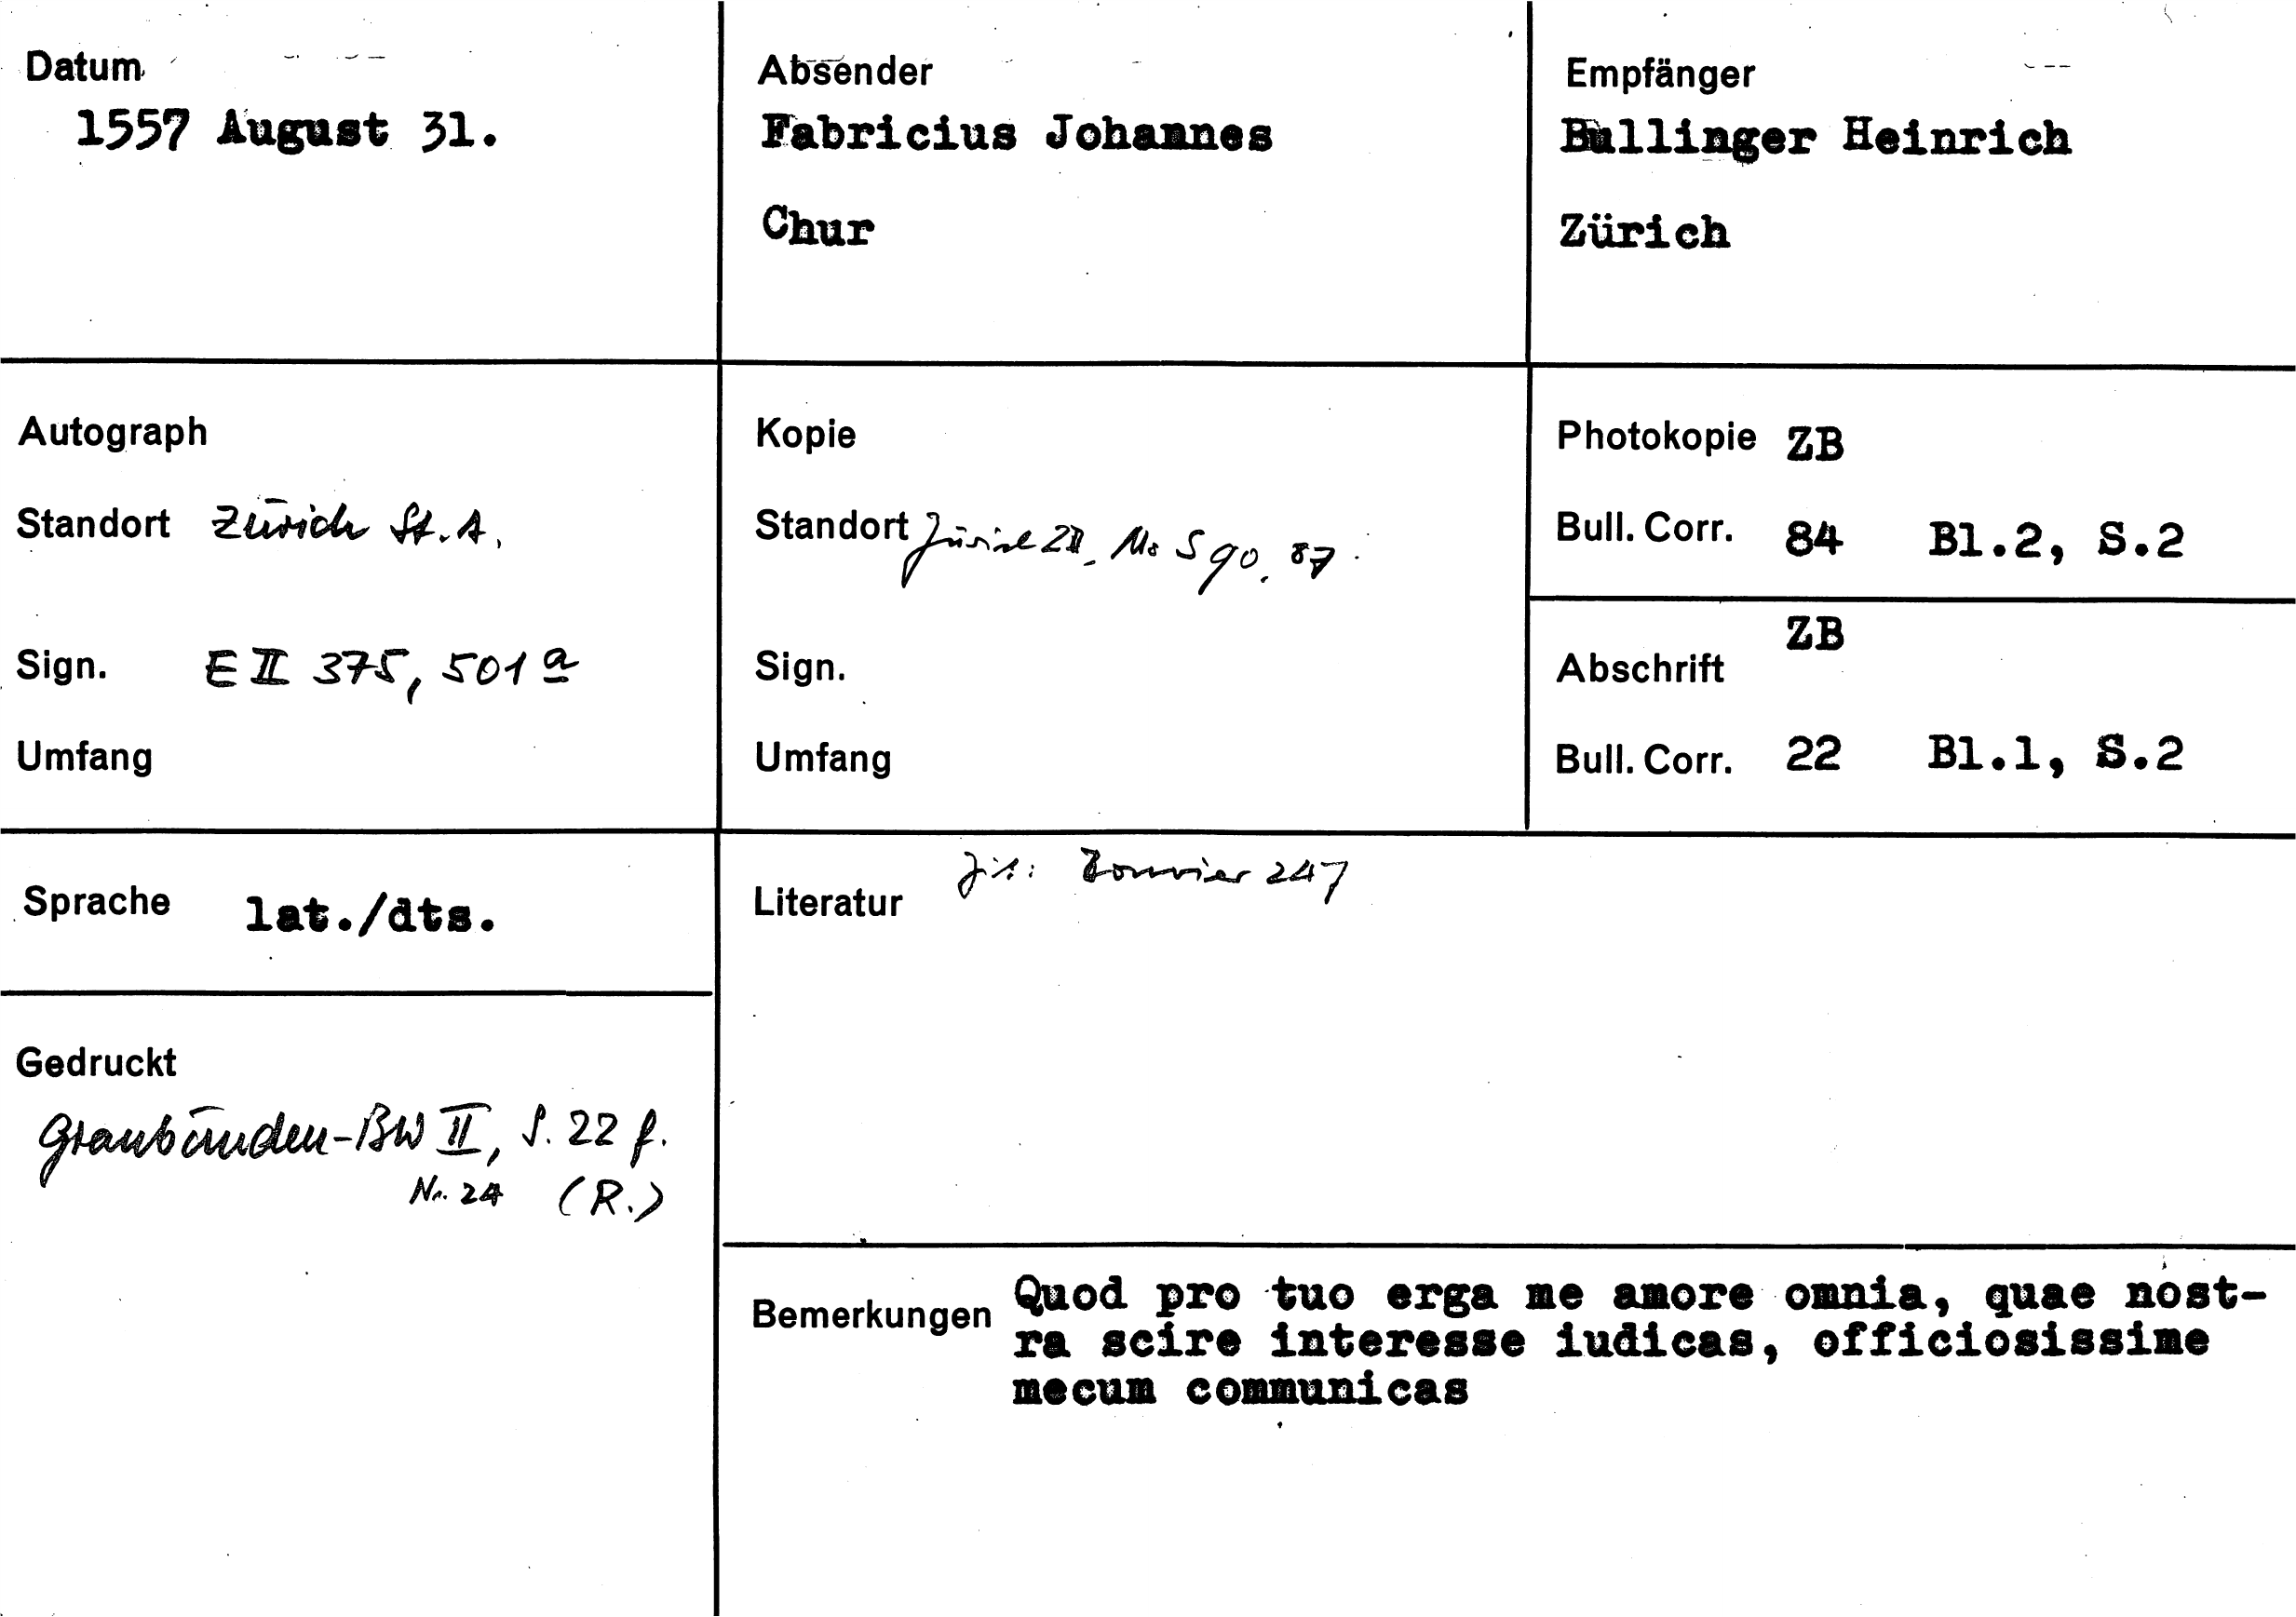 Datum
1557 August 31.
Absender
Fabricius Johannes
Chur
Empfänger
Bullinger Heinrich
Zürich
Autograph
Standort Zürich St. A.
Sign. E II 375, 501 a
Umfang
Kopie
Standort Zürich ZB, Ms S 90, 87
Sign.
Umfang
Photokopie ZB
Bull. Corr. 84 Bl.2, S.2
ZB
Abschrift
Bull. Corr. 22 Bl.1, S.2
Sprache lat./dts.
Gedruckt
Graubünden-BW II, S. 22 f.
Nr. 24 (R.)
Zit: Bouvier 247
Literatur
Bemerkungen Quod pro tuo erga me amore omnia, quae nost-
ra scire interesse iudicas, officiosissime
mecum communicas